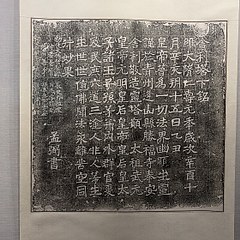 舍利塔下銘
維大隋仁壽元年歲次辛酉十
月辛亥朔十五日乙丑
皇帝普為一切法界幽顯生靈
謹於青州逢山縣勝福寺奉安
舍利敬造靈塔願 太祖武元
皇帝元明皇后皇帝皇后皇太
子諸王子孫等並內外群官爰
及民庶六道三塗人非人等生
生世世值佛聞法永離苦空同
升妙果
孟弼書